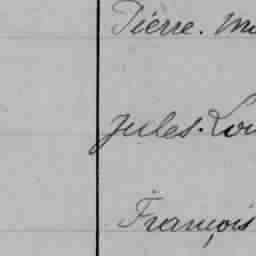 Pierre. M
Jules. Lou
François